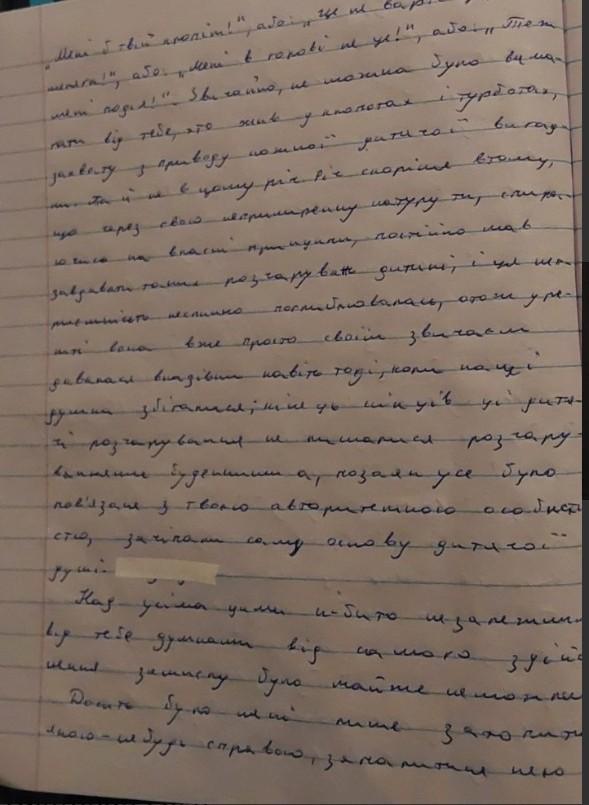 „Мені б твій клопіт!", або: „Це не вар
", або: „Мені в голові не це!", або: „Теж
мені подія!". Звичайно, не можна було вима-
гати від тебе, хто жив у клопотах і турботах,
захвату з приводу кожної дитячої вигад-
ки. Та й не в цьому річ. Річ скоріше в тому,
що через свою непримиренну натуру ти, спира-
ючись на власні принципи, постійно мав
завдавати таких розчарувань дитині, і ця не-
приємність неспинно поглиблювалась, отож у ре-
шті вона вже просто своїм звичаєм
давалася взнаки навіть тоді, коли наші
думки збігалися; кінець кінців ці дитя-
чі розчарування не лишалися розчару-
ваннями буденними, позаяк усе було
пов'язане з твоєю авторитетною особисті-
стю, зачіпали саму основу дитячої
душі.
Над усіма цими ні-бито незалежним
від тебе думками від самого здійс
нення замислу було майже неможли
Досить було мені лише захопити
якою-небудь справою, запалитися нею